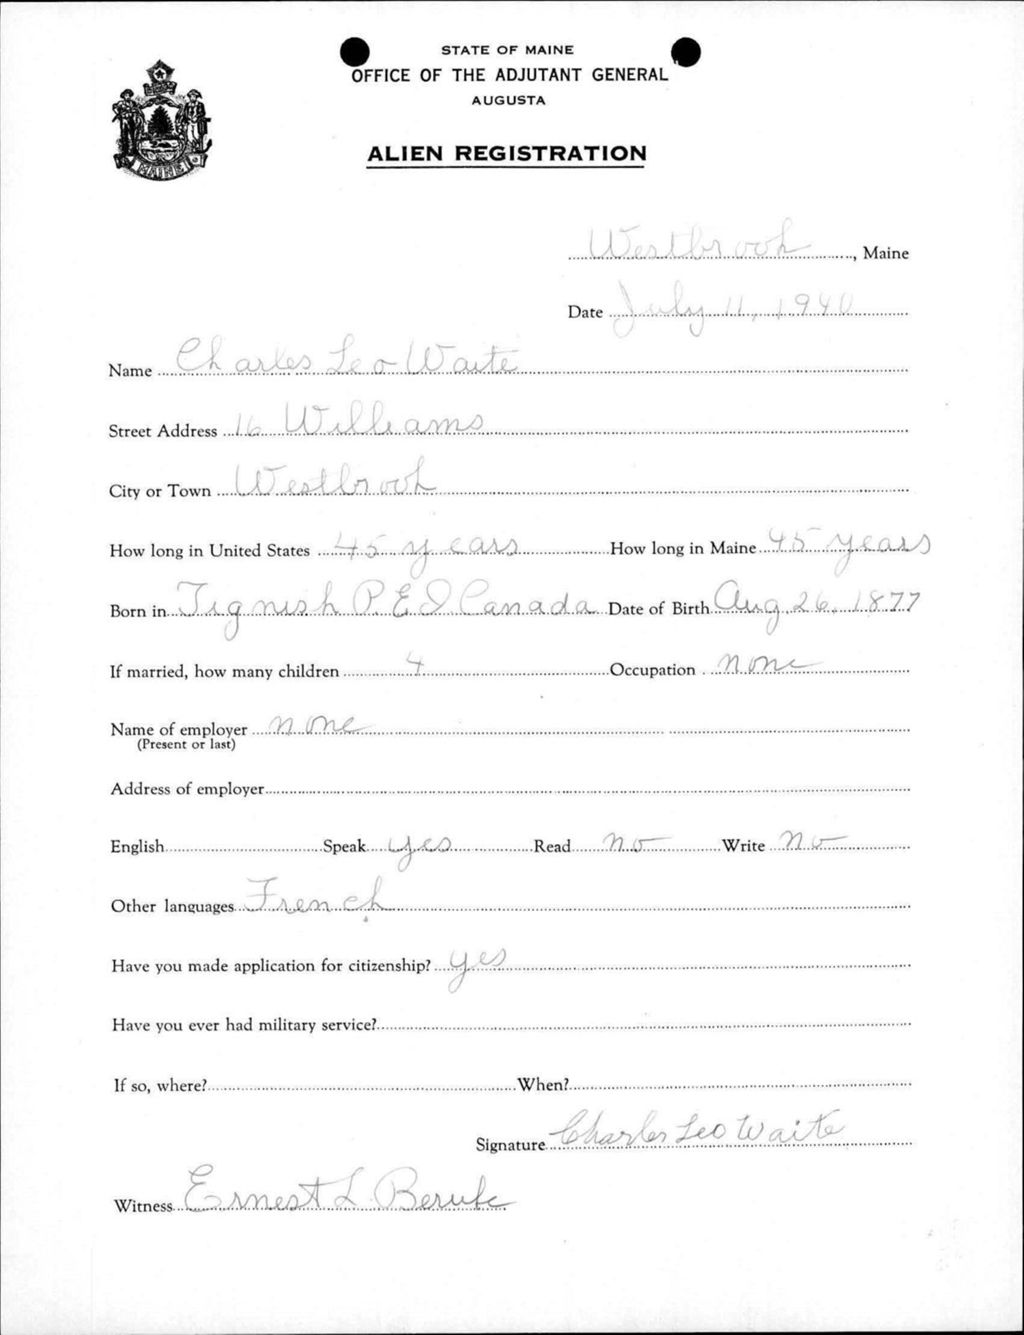 STATE OF MAINE
OFFICE OF THE ADJUTANT GENERAL
AUGUSTA
ALIEN REGISTRATION
MAINE
Westbrook, Maine
Date July 11, 1940
Name Charles Leo Waite
Street Address 16 Williams
City or Town Westbrook
How long in United States 45 years How long in Maine 45 years
Born in Tignish P.E.I Canada Date of Birth Aug 26, 1877
If married, how many children 4 Occupation none
Name of employer none
(Present or last)
Address of employer
English Speak yes Read no Write no
Other languages French
Have you made application for citizenship? yes
Have you ever had military service?
If so, where? When?
Signature Charles Leo Waite
Witness Ernest L. Berube